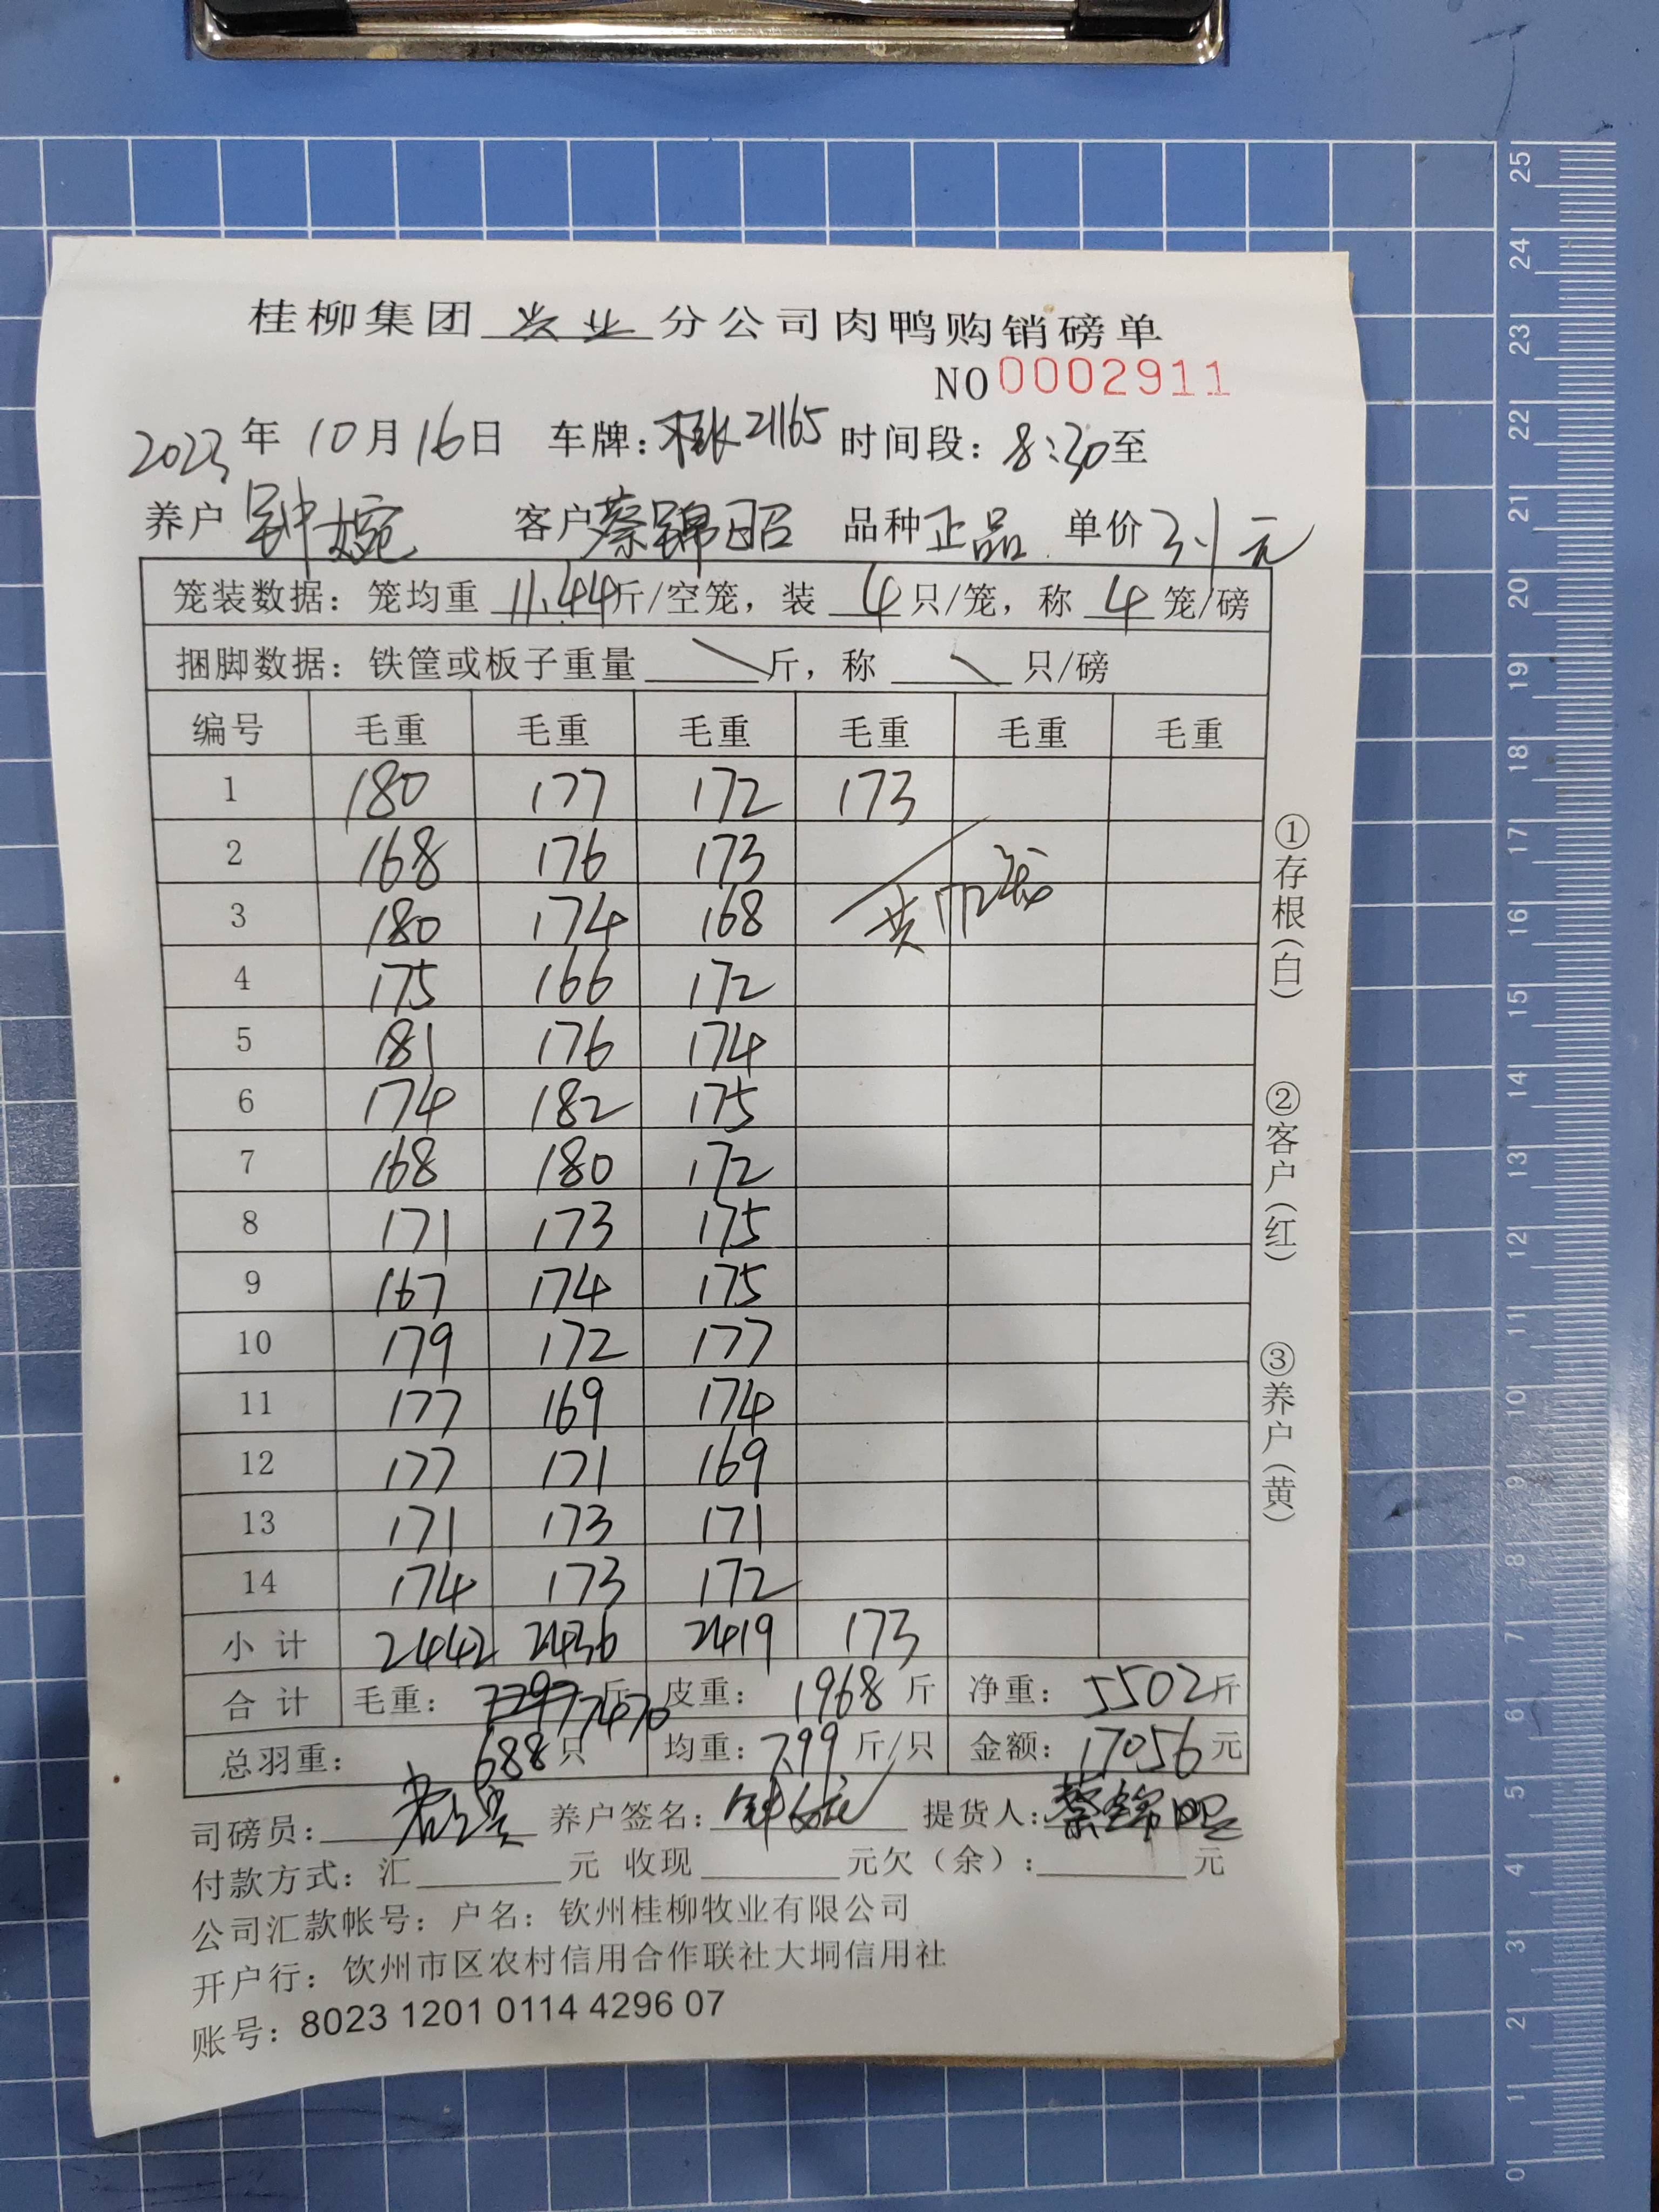 桂柳集团 兴业 分公司肉鸭购销磅单
NO 0002911
2023年 10月16日 车牌: 桂K21165 时间段: 8:30至
养户 钟婉 客户 蔡锦昭 品种 正品 单价 3.1元
笼装数据: 笼均重 11.44斤/空笼, 装 4 只/笼, 称 4 笼/磅
捆脚数据: 铁筐或板子重量 斤, 称 只/磅
编号 毛重 毛重 毛重 毛重 毛重 毛重
1 180 177 172 173
2 168 176 173
3 180 174 168 共172笼
4 175 166 172
5 181 176 174
6 174 182 175
7 168 180 172
8 171 173 175
9 167 174 175
10 179 172 177
11 177 169 174
12 177 171 169
13 171 173 171
14 174 173 172
小计 2442 2436 2419 173
合计 毛重: 7297 7470 斤 皮重: 1968 斤 净重: 5502斤
总羽重: 688只 均重: 7.99 斤/只 金额: 17056元
司磅员: 养户签名: 钟婉 提货人: 蔡锦昭
付款方式: 汇 元 收现 元欠(余): 元
公司汇款帐号: 户名: 钦州桂柳牧业有限公司
开户行: 钦州市区农村信用合作联社大垌信用社
账号: 8023 1201 0114 4296 07
①存根(白) ②客户(红) ③养户(黄)
25
24
23
22
21
20
19
18
17
16
15
14
13
12
11
10
9
8
7
6
5
4
3
2
1
0